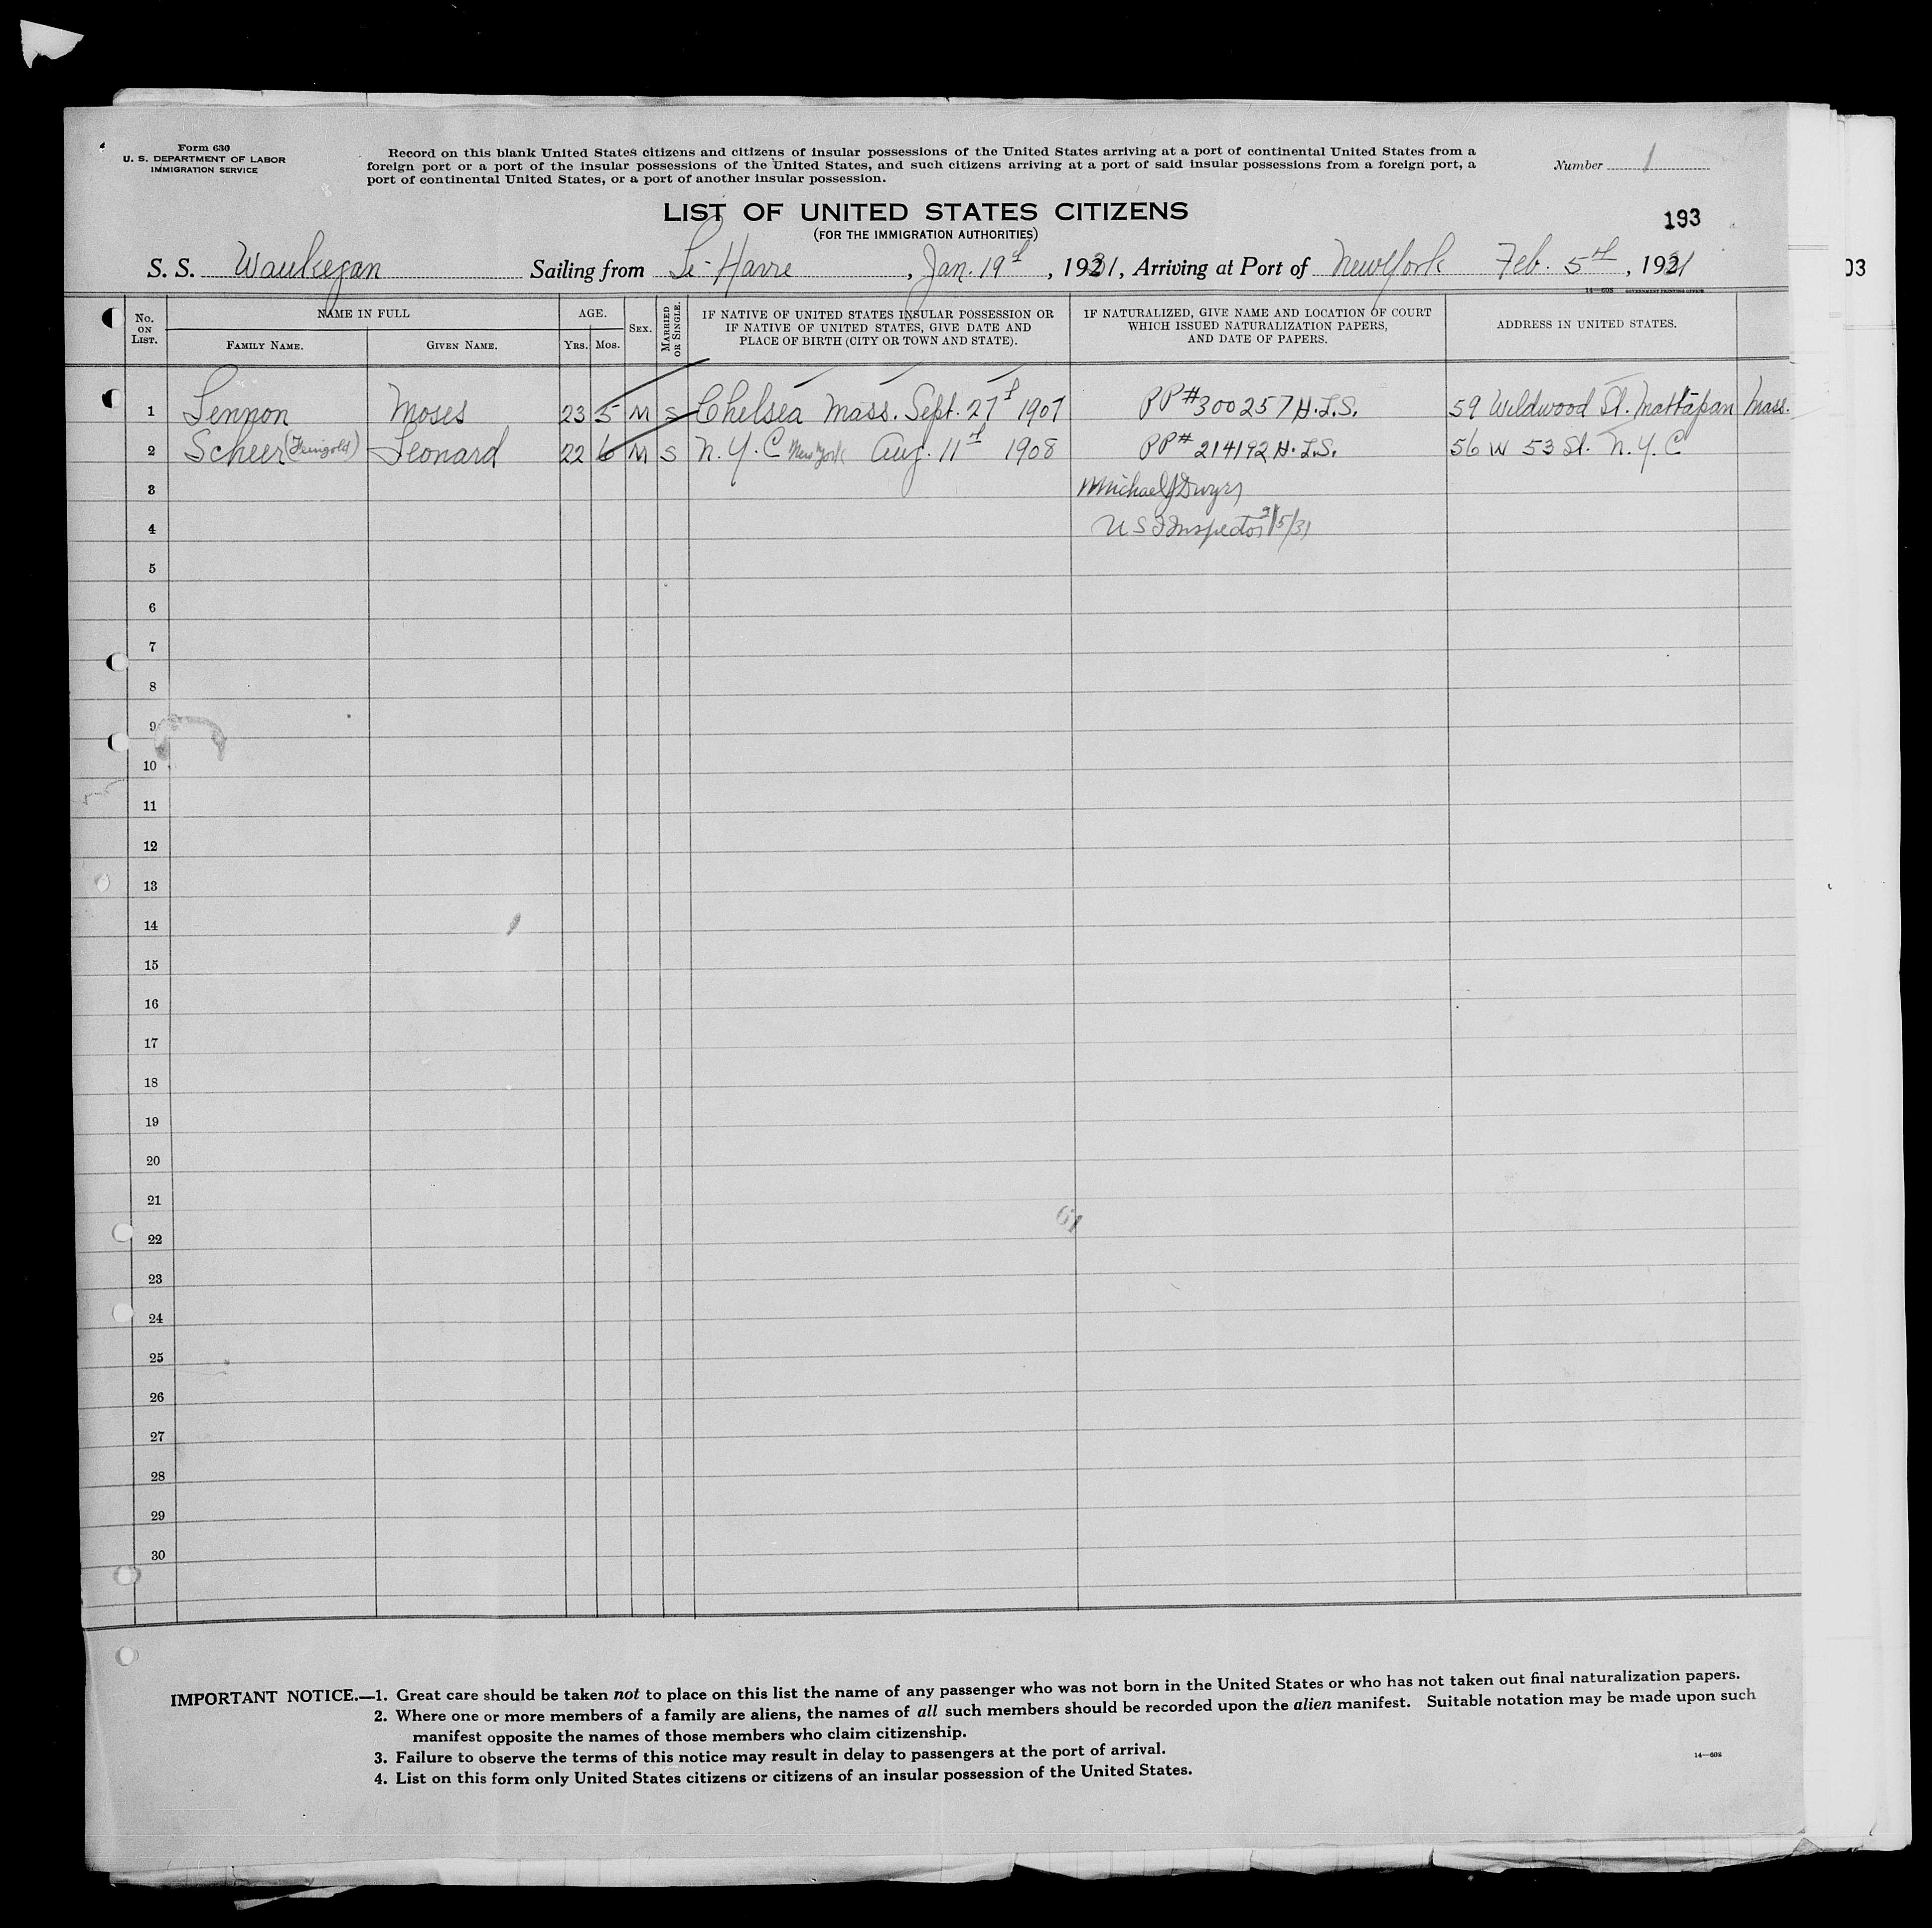 Form 630
U. S. DEPARTMENT OF LABOR
IMMIGRATION SERVICE
Record on this blank United States citizens and citizens of insular possessions of the United States arriving at a port of continental United States from a
foreign port or a port of the insular possessions of the United States, and such citizens arriving at a port of said insular possessions from a foreign port, a
port of continental United States, or a port of another insular possession.
Number 1
LIST OF UNITED STATES CITIZENS
(FOR THE IMMIGRATION AUTHORITIES)
193
S. S. Waukegan Sailing from Le-Havre, Jan. 19th, 1931, Arriving at Port of New York Feb. 5th, 1931
03
No. ON LIST.
NAME IN FULL
FAMILY NAME.
GIVEN NAME.
AGE.
YRS.
MOS.
SEX.
MARRIED OR SINGLE.
IF NATIVE OF UNITED STATES INSULAR POSSESSION OR
IF NATIVE OF UNITED STATES, GIVE DATE AND
PLACE OF BIRTH (CITY OR TOWN AND STATE).
IF NATURALIZED, GIVE NAME AND LOCATION OF COURT
WHICH ISSUED NATURALIZATION PAPERS,
AND DATE OF PAPERS.
ADDRESS IN UNITED STATES.
1 Lennon Moses 23 5 M S Chelsea Mass. Sept. 27th 1907 PP#300257 H.I.S. 59 Wildwood St. Mattapan Mass.
2 Scheer (Feingold) Leonard 22 6 M S N.Y.C New York Aug. 11th 1908 PP# 214192 H.I.S. 56 W 53 St. N.Y.C
3 Michael J Dwyer
4 U S I Inspector 2/5/31
5
6
7
8
9
10
11
12
13
14
15
16
17
18
19
20
21
22
23
24
25
26
27
28
29
30
61
IMPORTANT NOTICE.—1. Great care should be taken not to place on this list the name of any passenger who was not born in the United States or who has not taken out final naturalization papers.
2. Where one or more members of a family are aliens, the names of all such members should be recorded upon the alien manifest. Suitable notation may be made upon such
manifest opposite the names of those members who claim citizenship.
3. Failure to observe the terms of this notice may result in delay to passengers at the port of arrival.
4. List on this form only United States citizens or citizens of an insular possession of the United States.